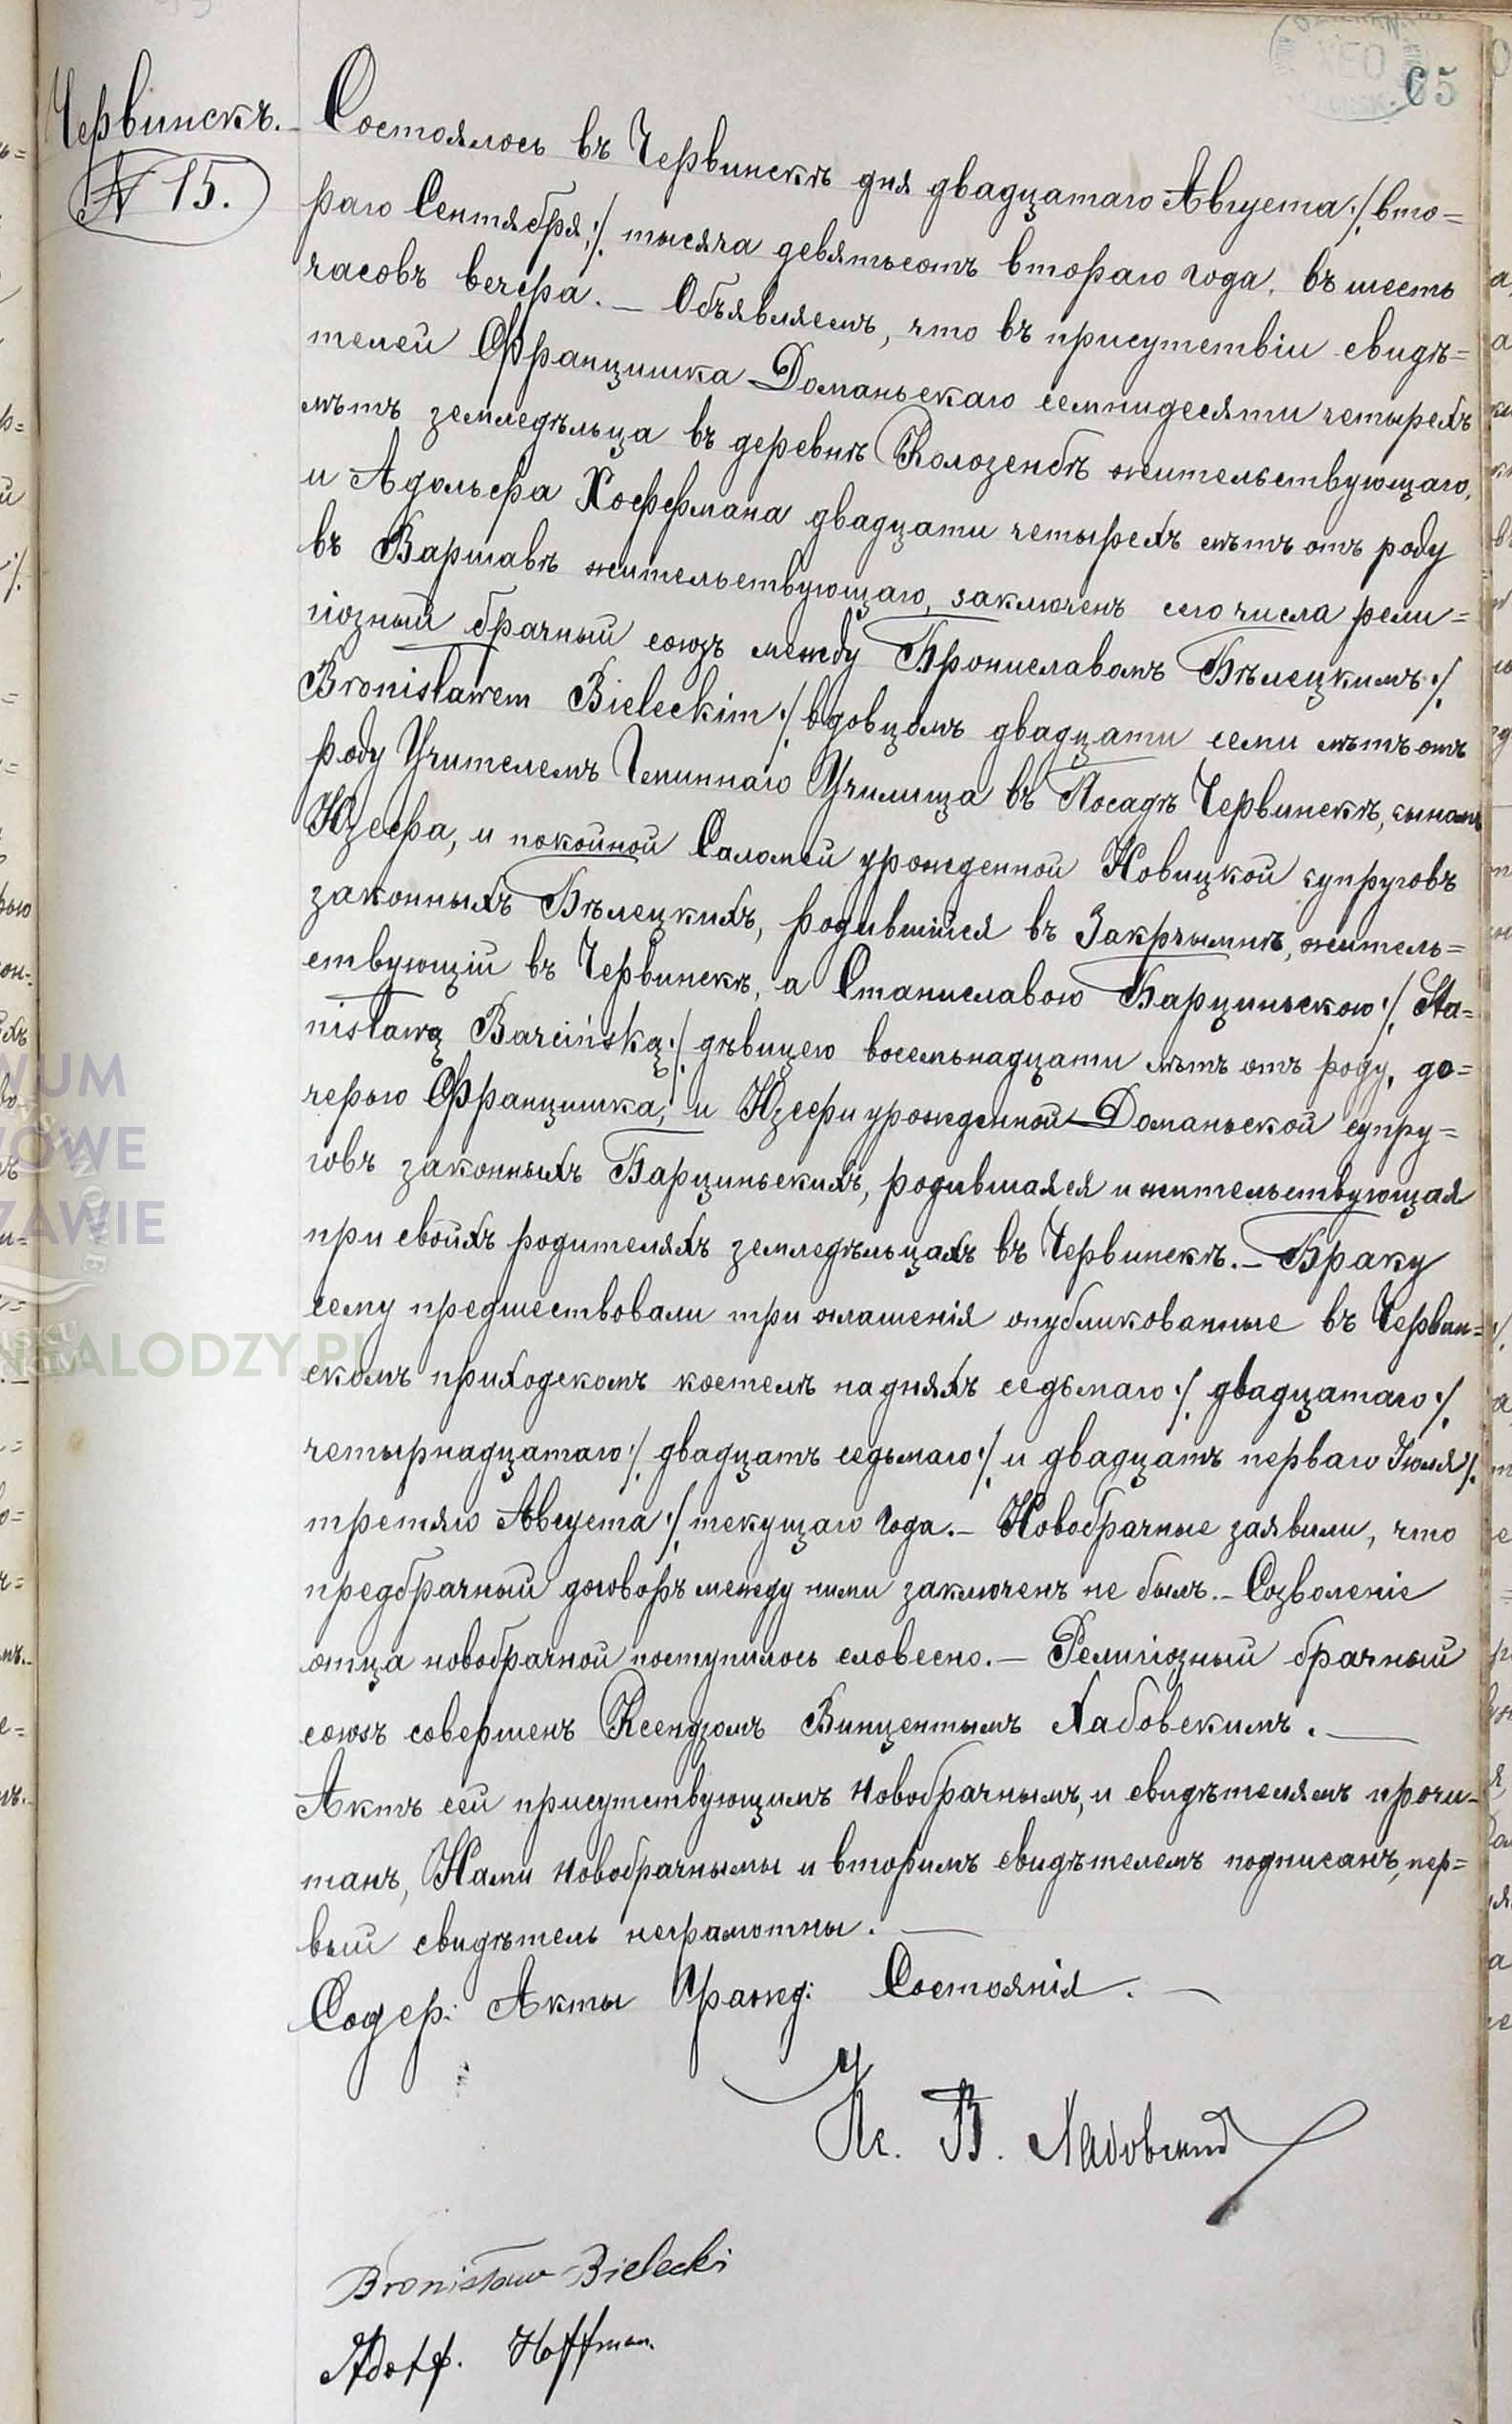 65
Червинскъ.
№ 15.
Состоялось въ Червинскѣ дня двадцатаго Августа ·/. вто=
раго Сентября ·/. тысяча девятьсотъ втораго года, въ шесть
часовъ вечера. — Объявляемъ, что въ присутствіи свидѣ=
телей Францишка Доманьскаго семпидесяти четырехъ
лѣтъ земледѣльца въ деревнѣ Колозембъ жительствующаго,
и Адольфа Хоффмана двадцати четырехъ лѣтъ отъ роду
въ Варшавѣ жительствующаго, заключенъ сего числа рели=
гіозный брачный союзъ между Брониславомъ Бѣлецкимъ ·/.
Bronisławem Bieleckim ·/. вдовцомъ двадцати семи лѣтъ отъ
роду Учителемъ Гминнаго Училища въ Посадѣ Червинскѣ, сыномъ
Юзефа, и покойной Саломеи урожденной Новицкой супруговъ
законныхъ Бѣлецкихъ, родившійся въ Закрчымъ, житель=
ствующій въ Червинскѣ, а Станиславою Барциньскою ·/. Sta=
nisławą Barcińską ·/. дѣвицею восемьнадцати лѣтъ отъ роду, до=
черью Францишка, и Юзефы урожденной Доманьской супру=
говъ законныхъ Барциньскихъ, родившаяся и жительствующая
при своихъ родителяхъ земледѣльцахъ въ Червинскѣ. — Браку
сему предшествовали три оглашенія опубликованные въ Червин=
скомъ приходскомъ костелѣ на дняхъ седьмаго ·/. двадцатаго ·/.
четырнадцатаго ·/. двадцать седьмаго ·/. и двадцать перваго Іюля ·/.
третяго Августа ·/. текущаго года. — Новобрачные заявили, что
предбрачный договоръ между ними заключенъ не былъ. — Созволеніе
отца новобрачной поступилось словесно. — Религіозный брачный
союзъ совершенъ Ксендзомъ Винцентымъ Хабовскимъ. —
Актъ сей присутствующимъ новобрачнымъ, и свидѣтелямъ прочи-
танъ, Нами новобрачнымы и вторимъ свидѣтелемъ подписанъ, пер=
вый свидѣтель неграмотны. —
Содер: Акты Гражд: Состоянія. —
Кс. В. Хабовский
Bronisław Bielecki
Adolf. Hoffman.